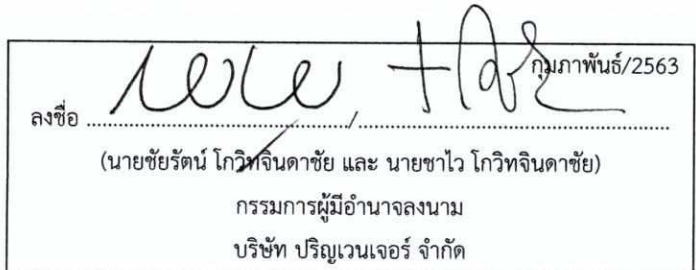 กุมภาพันธ์/2563
ลงชื่อ ............................................./......................................................
(นายชัยรัตน์ โกวิทจินดาชัย และ นายชาไว โกวิทจินดาชัย)
กรรมการผู้มีอำนาจลงนาม
บริษัท ปริญเวนเจอร์ จำกัด